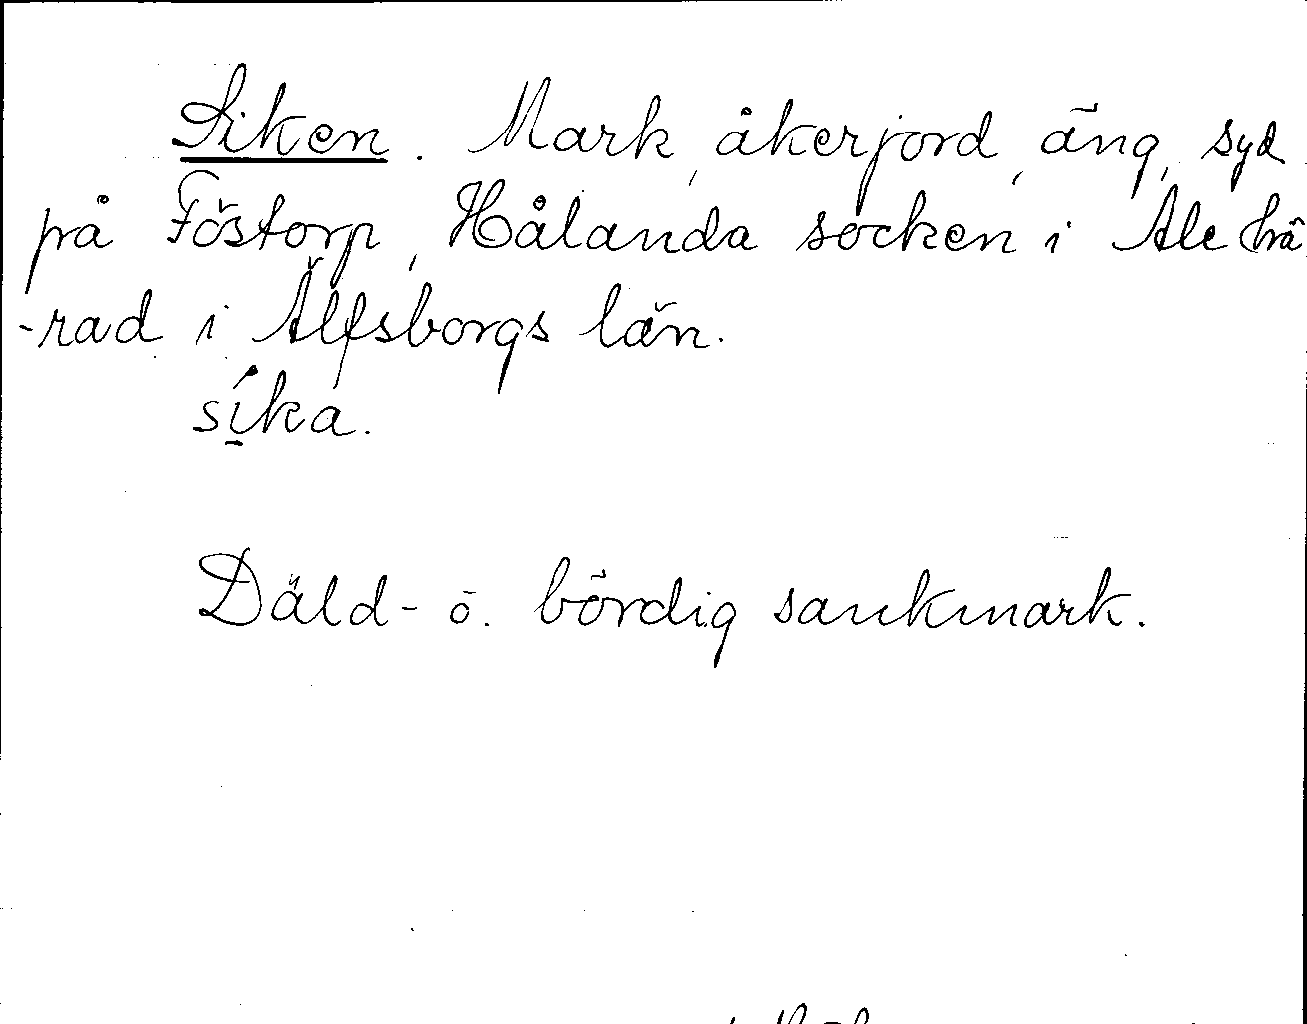 Siken. Mark, åkerjord, äng, syd
på Föstorp, Hålanda socken i Ale hä
-rad i Älfsborgs län.
síka.
Däld- o. bördig sankmark.